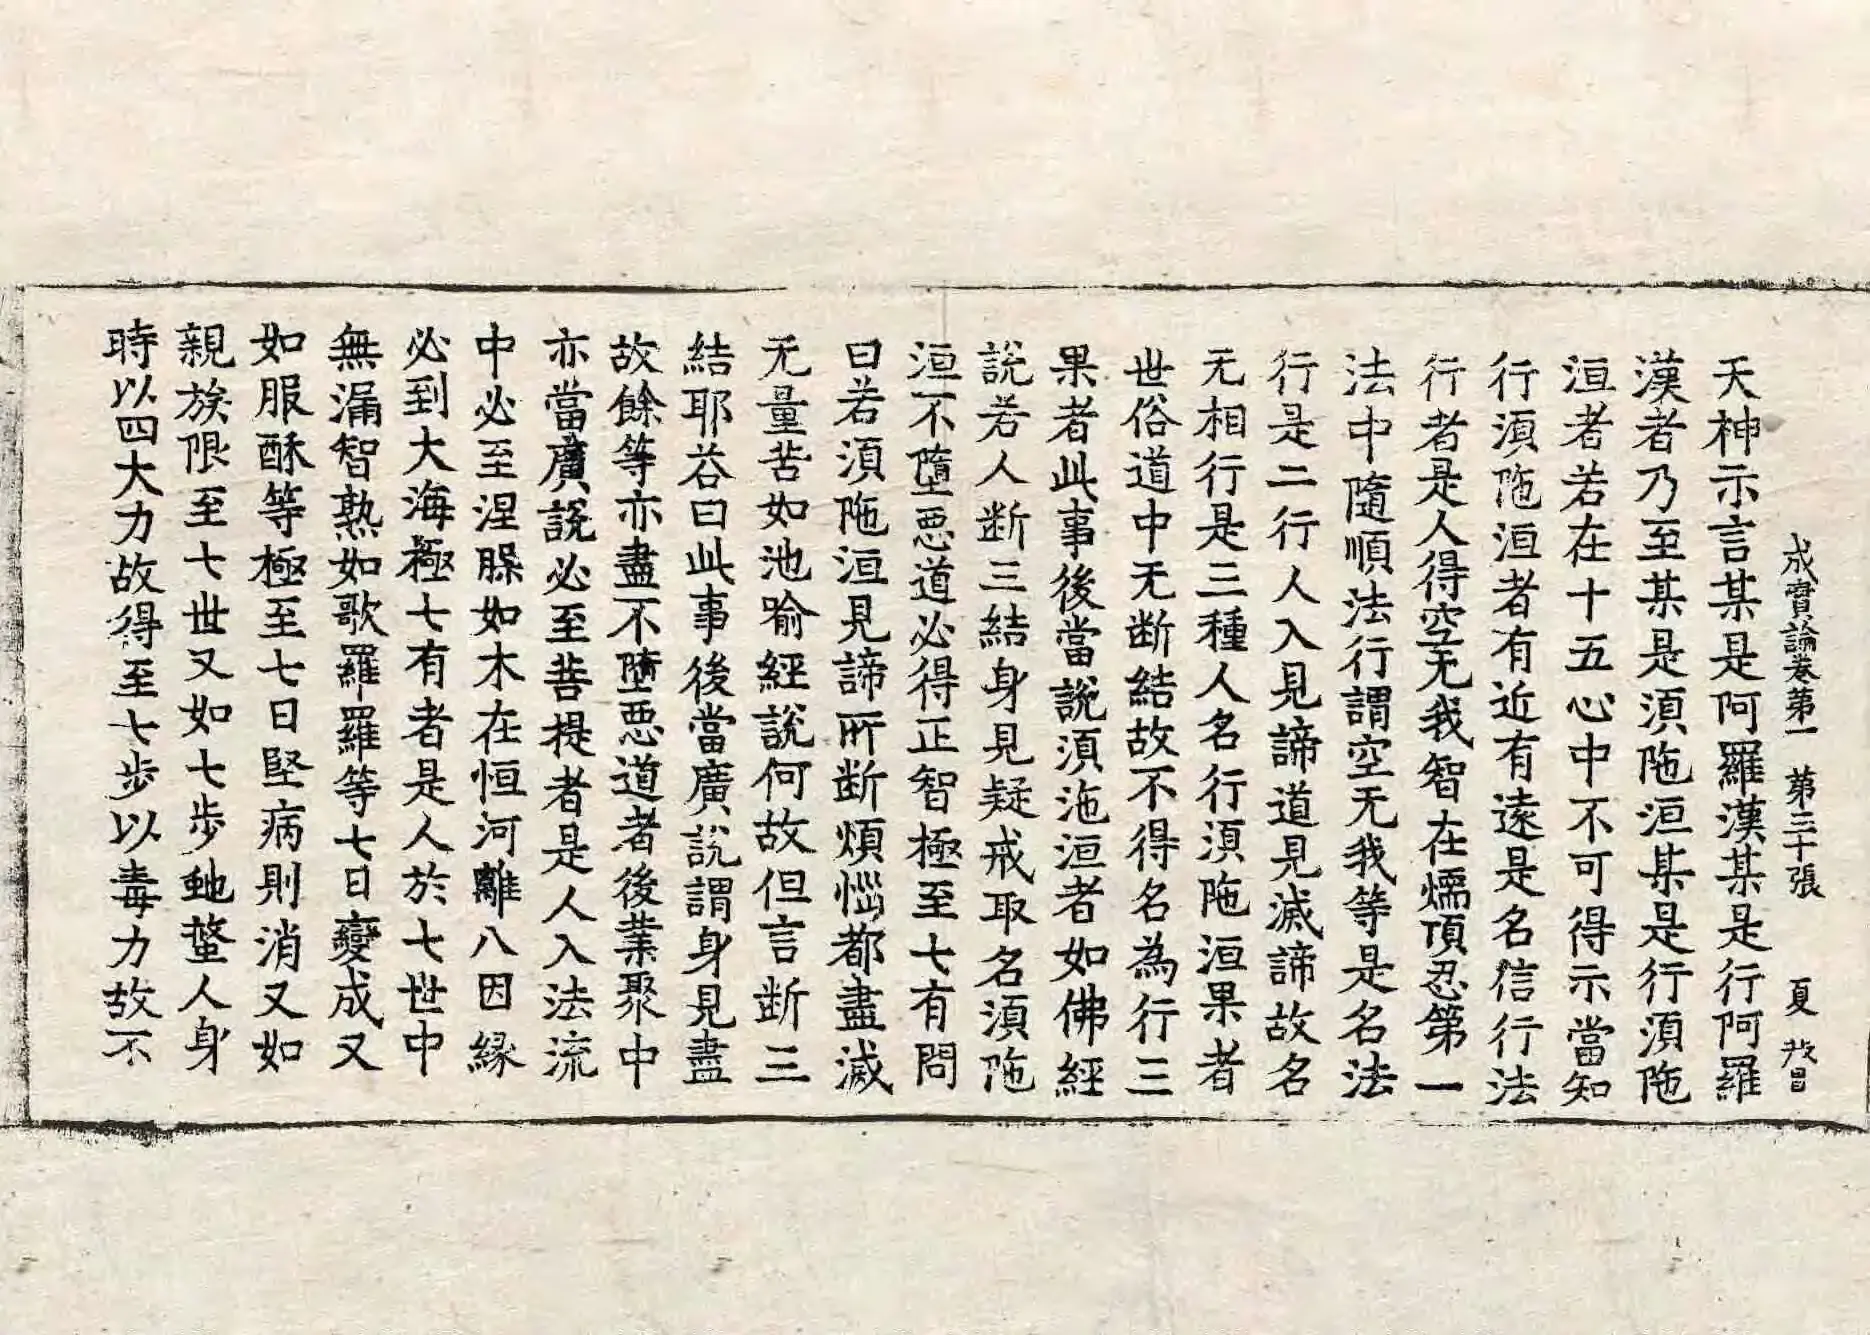 成實論卷第一 第三十張 夏 昌
天神示言某是阿羅漢某是行阿羅
漢者乃至某是湏陁洹某是行湏陁
洹者若在十五心中不可得示當知
行湏陁洹者有近有遠是名信行法
行者是人得空无我智在煗頂忍第一
法中隨順法行謂空无我等是名法
行是二行人入見諦道見滅諦故名
无相行是三種人名行湏陁洹果者
世俗道中无断結故不得名為行三
果者此事後當說湏陁洹者如佛經
說若人断三結身見疑戒取名湏陁
洹不墮惡道必得正智極至七有問
曰若湏陁洹見諦所断煩惱都盡滅
无量苦如池喻經說何故但言断三
結耶荅曰此事後當廣說謂身見盡
故餘等亦盡不墮惡道者後業聚中
亦當廣說必至菩提者是人入法流
中必至涅槃如木在恒河離八因縁
必到大海極七有者是人於七世中
無漏智熟如歌羅羅等七日變成又
如服酥等極至七日堅病則消又如
親族限至七世又如七步虵螫人身
時以四大力故得至七步以毒力故不